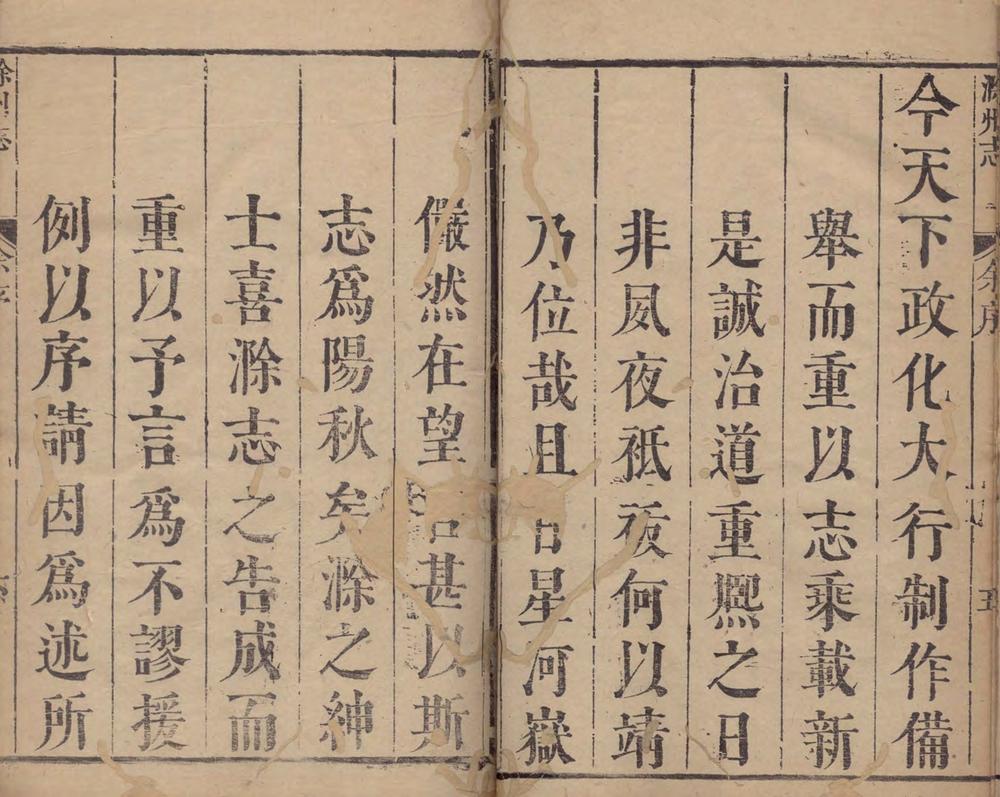 滁州志
余序
五
今天下政化大行制作備
舉而重以志乘載新
是誠治道重熈之日
非夙夜祗敬何以靖
乃位哉且日星河嶽
儼然在望甚以斯
志爲陽秋矣滁之紳
士喜滁志之告成而
重以予言爲不謬援
例以序請因爲述所